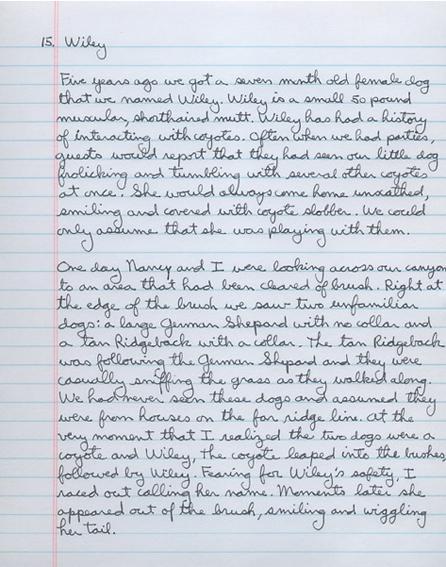 15. Wiley
Five years ago we got a seven month old female dog
that we named Wiley. Wiley is a small 50 pound
muscular, shorthaired mutt. Wiley has had a history
of interacting with coyotes. Often when we had parties,
guests would report that they had seen our little dog
frolicking and tumbling with several other coyotes
at once. She would always come home unscathed,
smiling and covered with coyote slobber. We could
only assume that she was playing with them.
One day Nancy and I were looking across our canyon
to an area that had been cleared of brush. Right at
the edge of the brush we saw two unfamiliar
dogs: a large German Shepard with no collar and
a tan Ridgeback with a collar. The tan Ridgeback
was following the German Shepard and they were
casually sniffing the grass as they walked along.
We had never seen these dogs and assumed they
were from houses on the far ridge line. At the
very moment that I realized the two dogs were a
coyote and Wiley, the coyote leaped into the bushes,
followed by Wiley. Fearing for Wiley's safety, I
raced out calling her name. Moments later she
appeared out of the brush, smiling and wiggling
her tail.